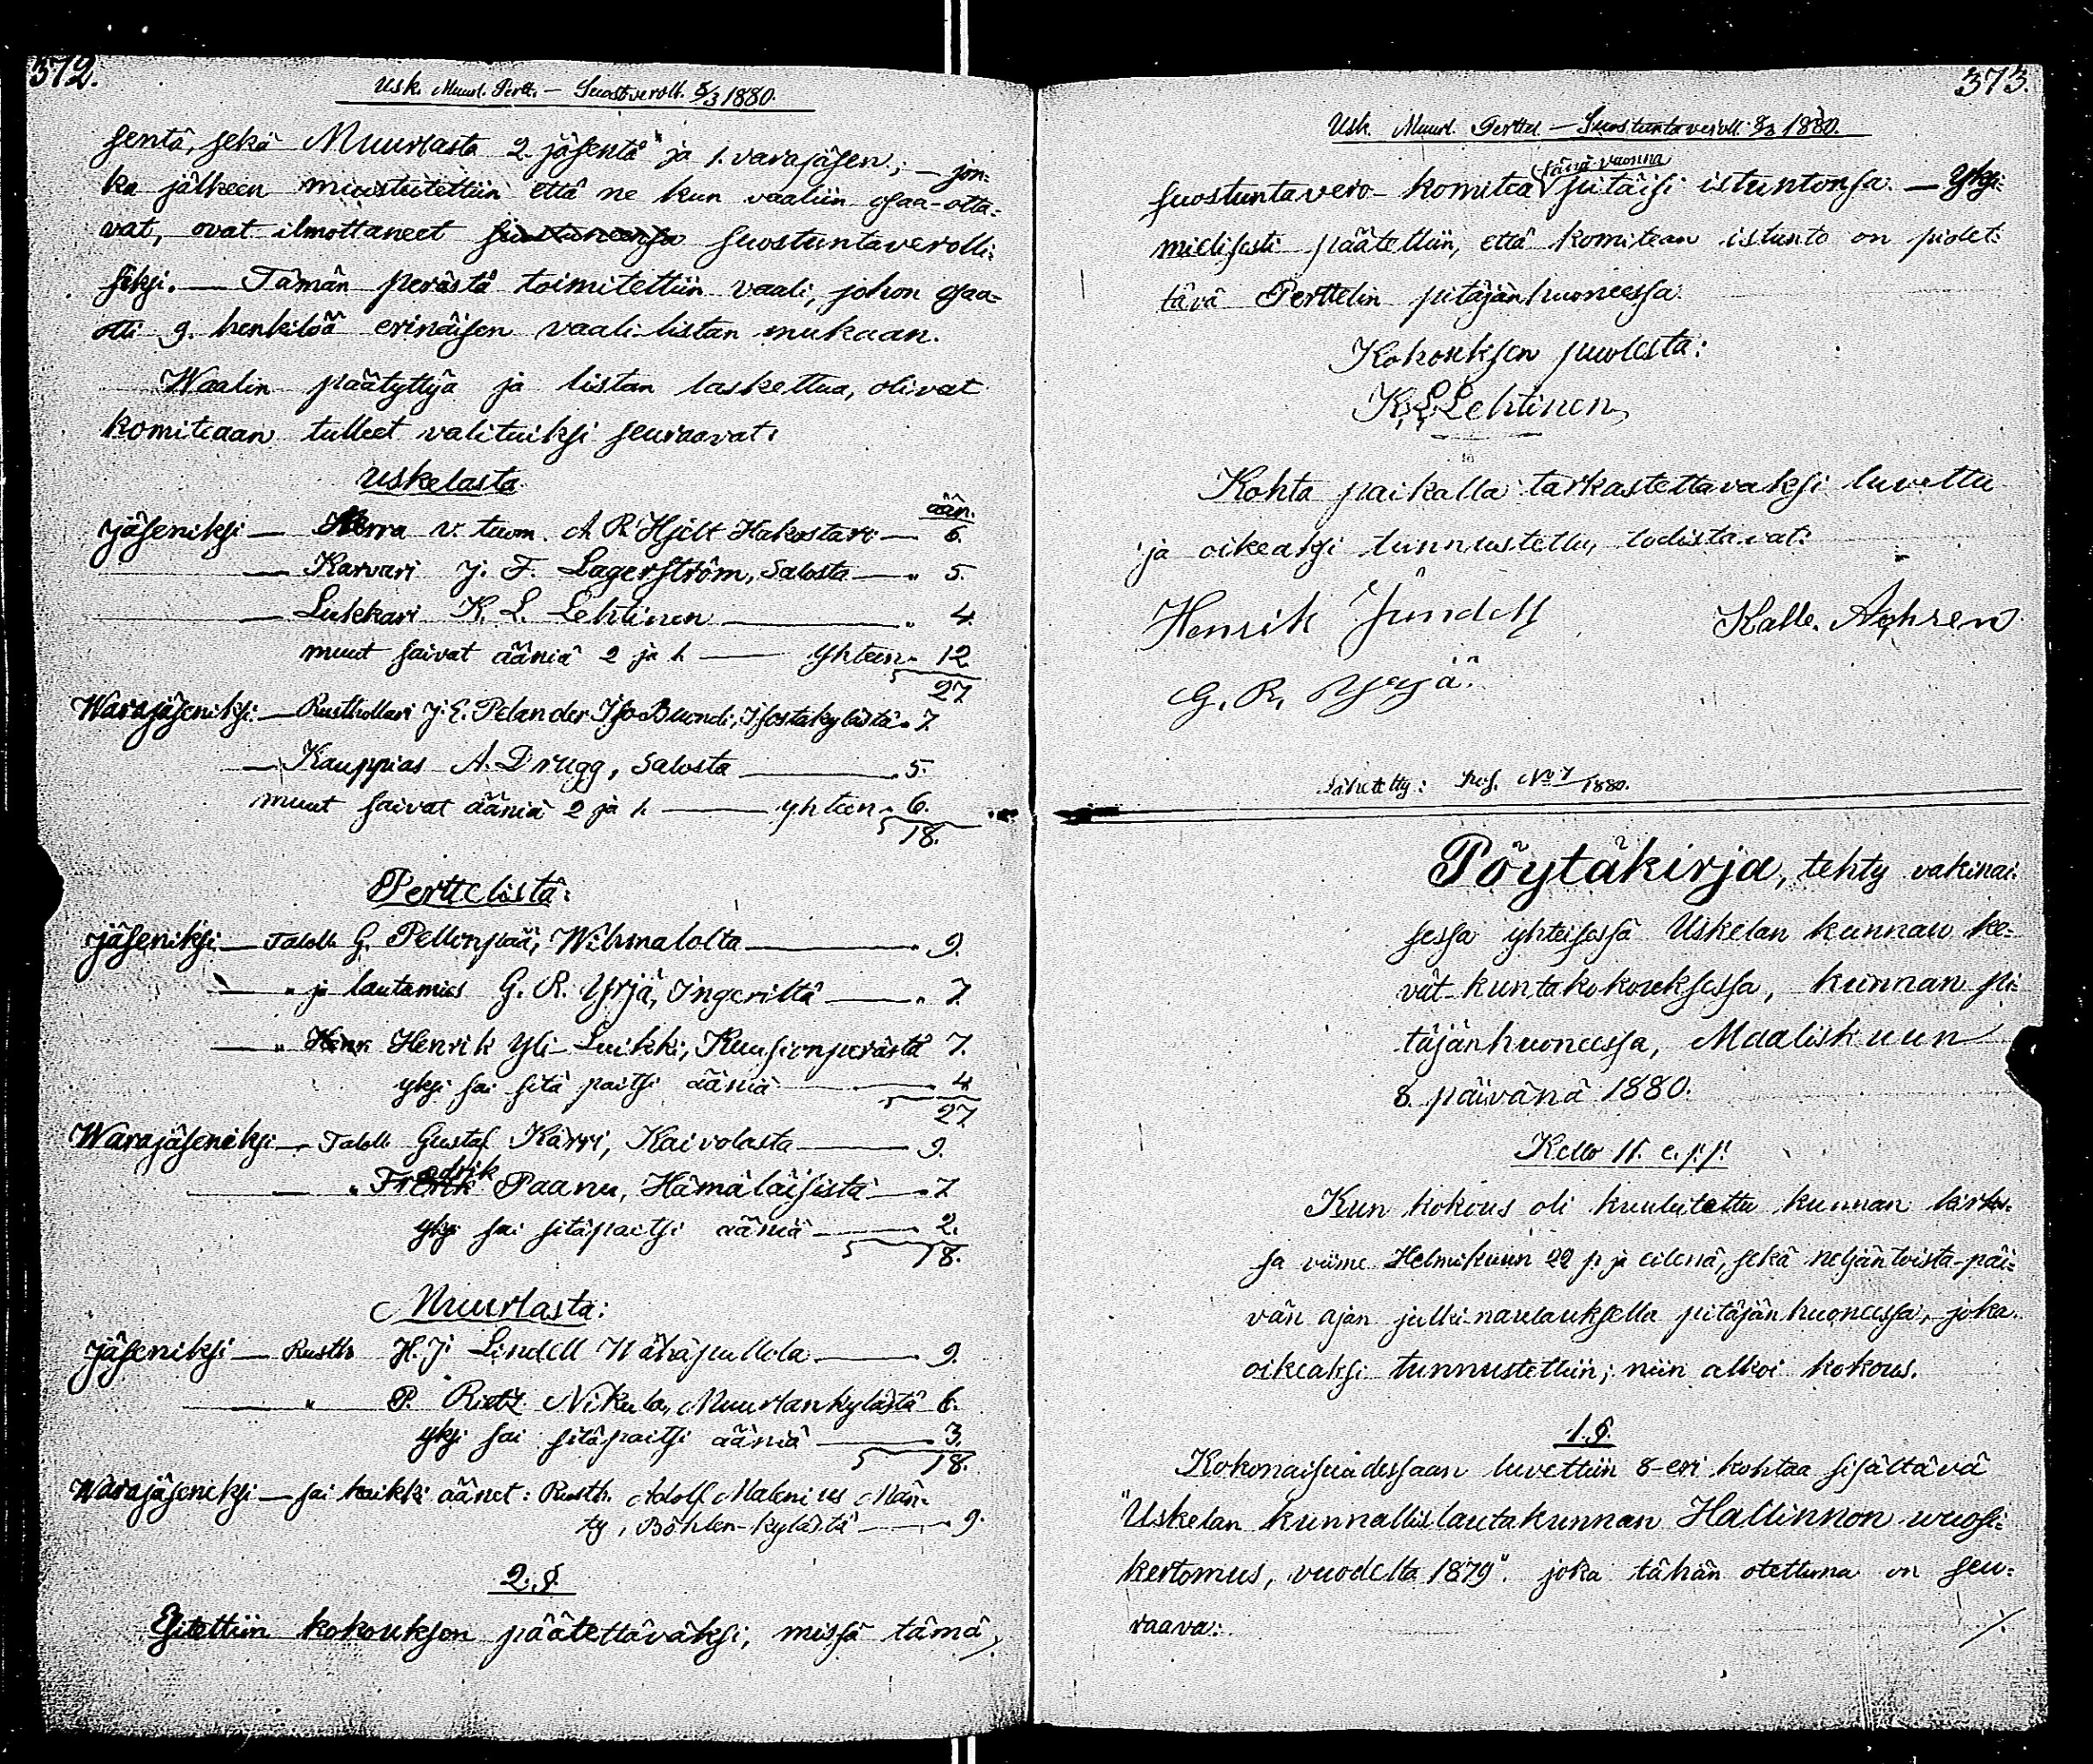 372.
Usk. Muurl. Pertt. — Suostveroll. 5/3 1880.
sentä, sekä Muurlasta 2. jäsentä ja 1. varajäsen; — jon-
ka jälkeen muistutettiin että ne kun vaaliin osaa-otta-
vat, ovat ilmottaneet suostuntaverolli-
siksi. — Tämän perästä toimitettiin vaali, johon osaa-
otti 9. henkilöä erinäisen vaali-listan mukaan.
Waalin päätyttyä ja listan laskettua, olivat
komiteaan tulleet valituiksi seuraavat:
Uskelasta
ään.
Jäseniksi — Herra v. tuom. A R Hjelt Hakostaro — 6.
— Karvari J. F. Lagerström, Salosta — „ 5.
— Lukkari K. L. Lehtinen — „ 4.
muut saivat ääniä 2 ja 1. — yhteen „ 12
27
Warajäseniksi — Rusthollari J. E. Pelander Iso Buondi, Isostakylästä „ 7.
— Kauppias A. Drugg, Salosta — „ 5.
muut saivat ääniä 2 ja 1. — yhteen „ 6.
18.
Perttelistä:
Jäseniksi — Taloll. G. Pellonpää, Wihmalolta — „ 9.
— „ ja lautamies G. R. Yrjä, Ingeriltä — „ 7.
— „ Henrik Yli-Luikki, Ruusionperästä 7.
yksi sai sitä paitsi ääniä — 4
27
Warajäseniksi — Taloll. Gustaf Kärri, Kaivolasta — 9.
— „ Fredrik Paanu, Hämäläisistä — „ 7
yksi sai sitäpaitsi ääniä — 2.
18.
Muurlasta:
Jäseniksi — Rusth. H. J. Lindell Wähäpullola — 9.
— „ P. Rietz Nikula, Muurlankylästä 6.
yksi sai sitäpaitsi ääniä — 3.
18.
Warajäseniksi — sai kaikki äänet: Rusth. Adolf Malenius Män-
ty, Böhlen-kylästä — 9.
2. §.
Esitettiin kokouksen päätettäväksi, missä tämä
373.
Usk. Muurl. Perttel. — Suostuntaveroll. 5/3 1880.
tänä vuonna
suostuntavero-komitea pitäisi istuntonsa. — Yksi-
mielisesti päätettiin, että komitean istunto on pidet-
tävä Perttelin pitäjänhuoneessa.
Kokouksen puolesta:
K. L. Lehtinen
Kohta paikalla tarkastettavaksi luvettu
ja oikeaksi tunnustettu, todistavat:
Henrik Kalle
G. R. Yrjä.
Lähetetty: No 7/1880.
Pöytäkirja, tehty vakinai-
sessa yhteisessä Uskelan kunnan ke-
vät-kuntakokouksessa, kunnan pi-
täjänhuoneessa, Maaliskuun
8. päivänä 1880.
Kello 11. e. p. p.
Kun kokous oli kuulutettu kunnan kirkos-
sa viime Helmikuun 22 p. ja eilenä, sekä neljäntoista-päi-
vän ajan julki-naulauksella pitäjänhuoneessa, joka
oikeaksi tunnustettiin; niin alkoi kokous.
1. §.
Kokonaisuudessaan luvettiin 8-eri kohtaa sisältävä
"Uskelan kunnallislautakunnan Hallinnon wuosi-
kertomus, vuodelta 1879". joka tähän otettuna on seu-
raava: